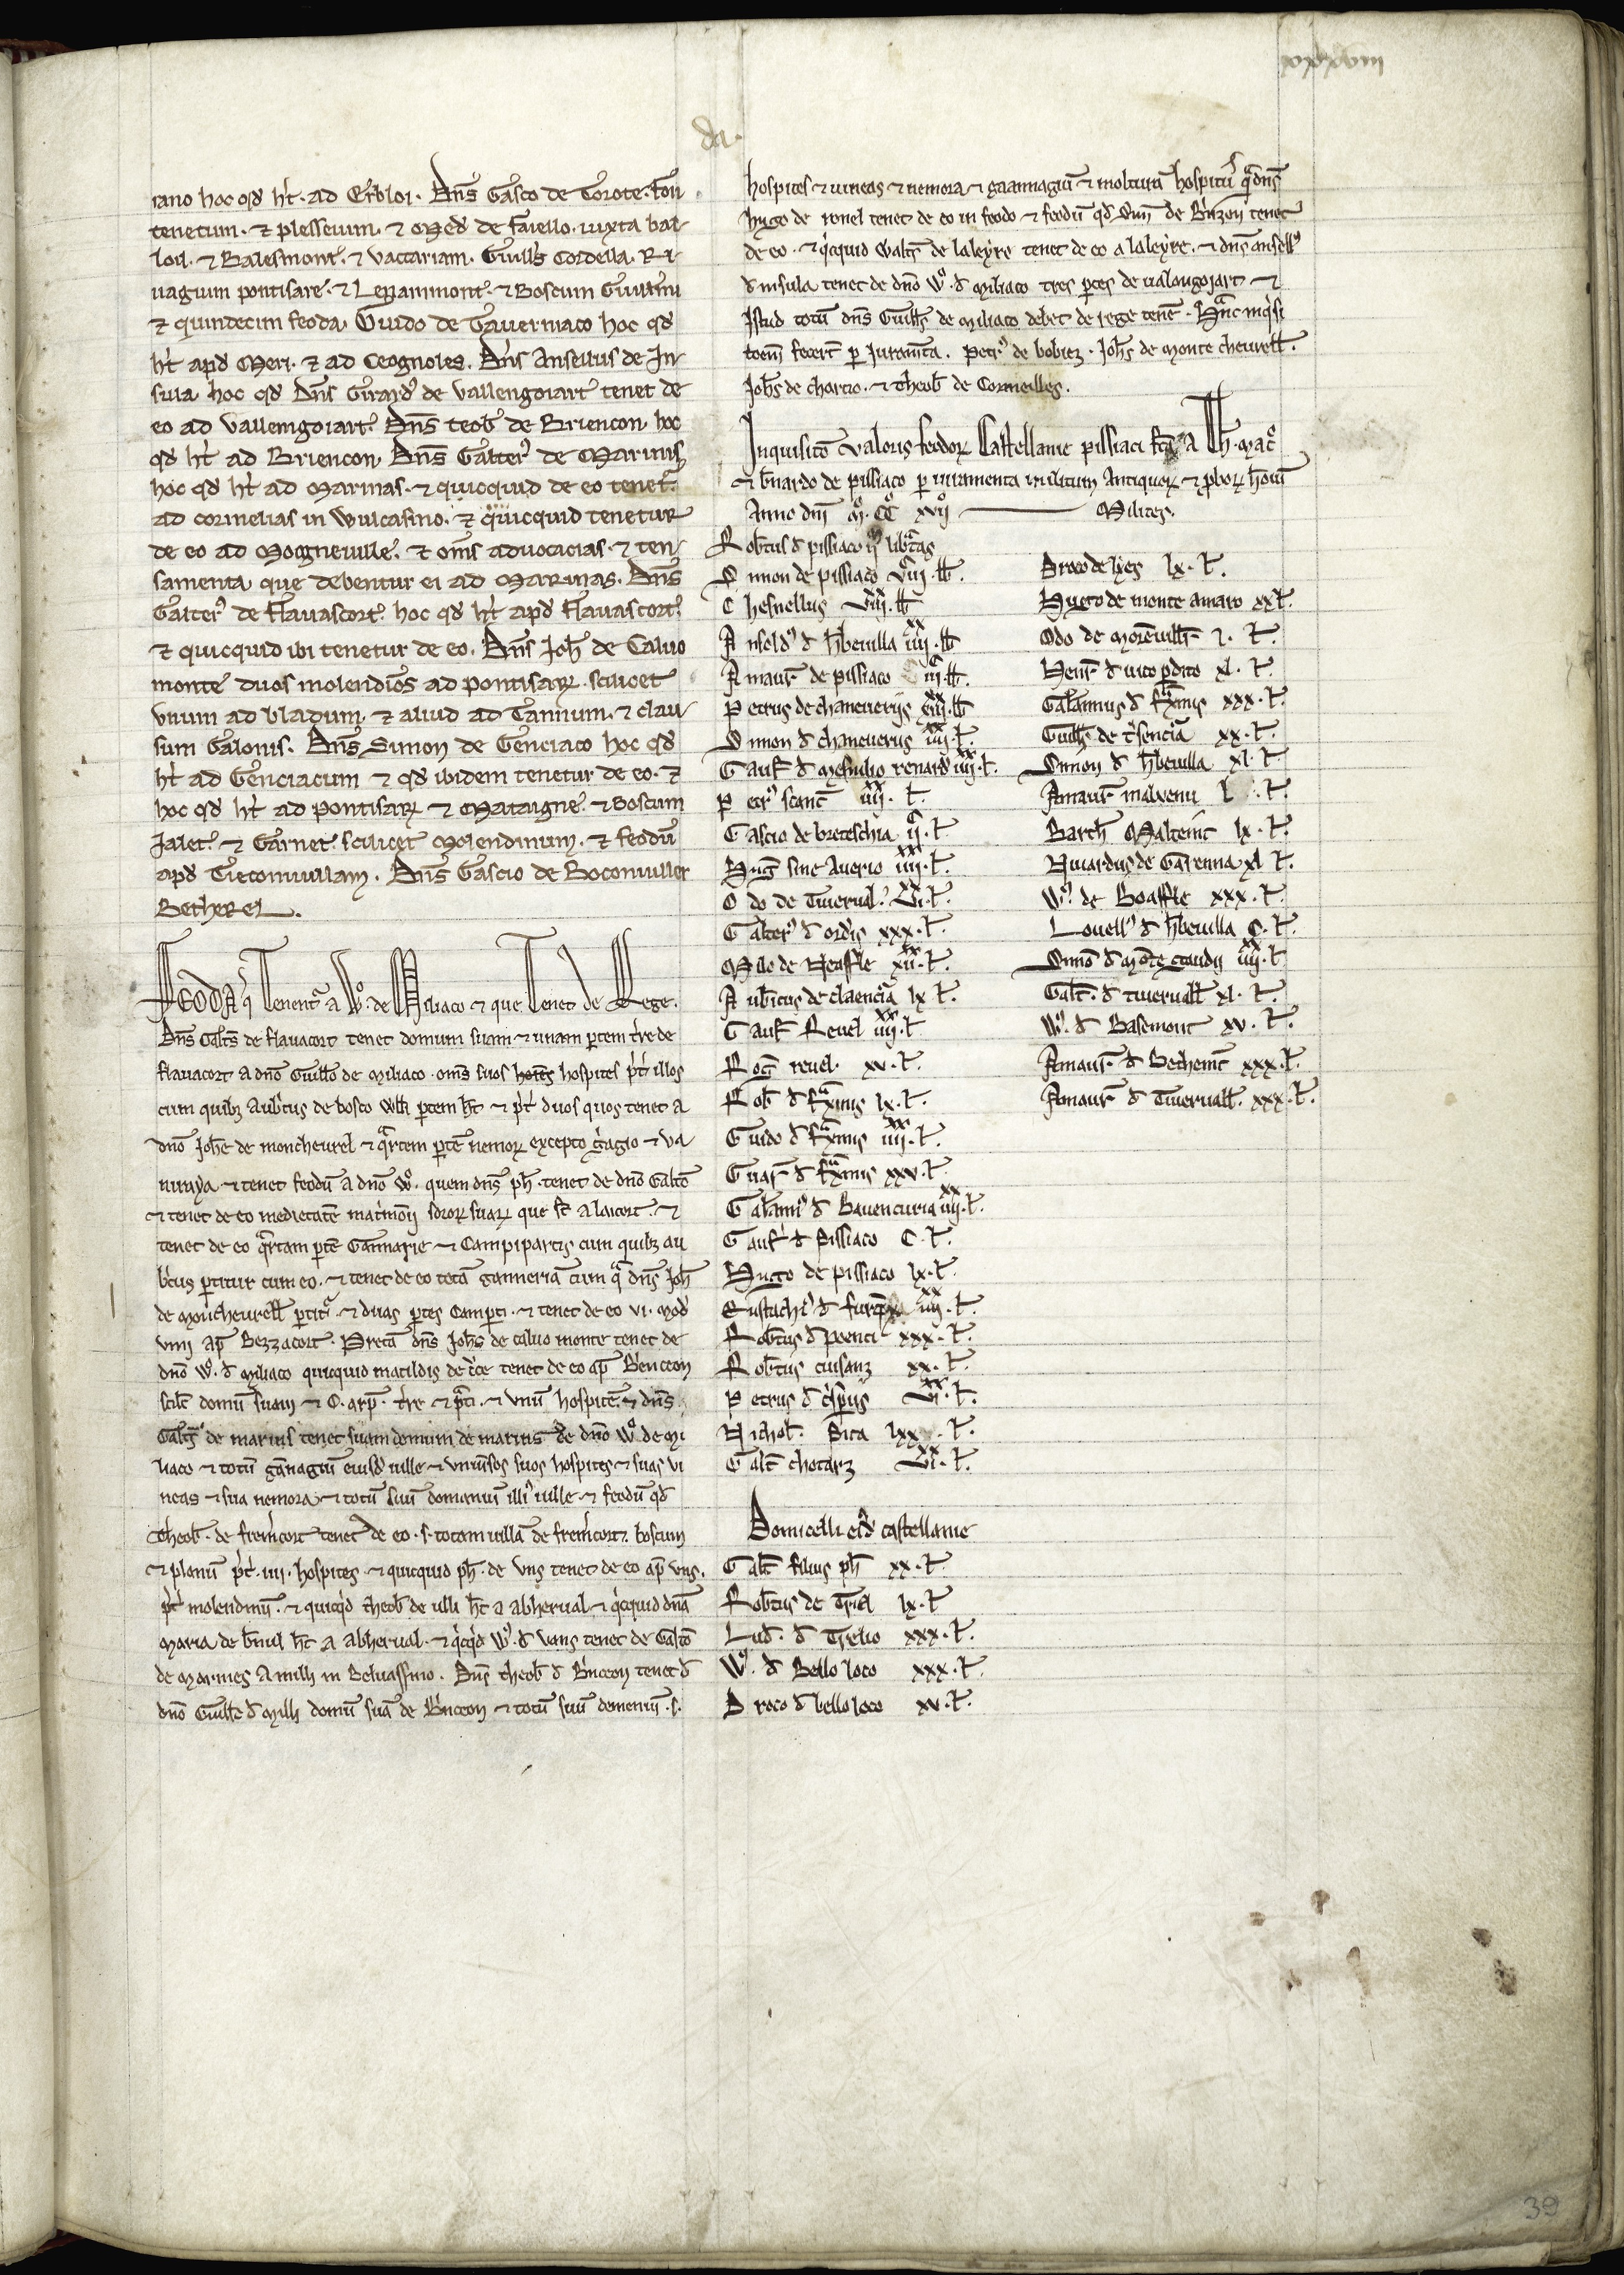 xxxviii
da.
rano hoc qd ht. ad Erbloi. Dns Gasco de Torote. fon
tenetum. et plesseium. et Med de faiello. iuxta bai
loil. et Balesmont. et vaccariam. Guills Cordella. Ri
uagium pontisare. et Leparimont. et Boscum Guillmi
et quindecim feoda. Guido de Tauerniaco hoc qd
ht apd Meri. et ad Ceognoles. Dns Ansellus de In
sula hoc qd Dns Girard de vallengoiart tenet de
eo ad vallemgoiart. Dns teob de Briencon hoc
qd ht ad Briencon. Dns Galter de Marinis
hoc qd ht ad Marinas. et quicquid de eo tenet
ad cormelias in Wulcasino. et quicquid tenetur
de eo ad Mogneuille. et oms aduocacias. et ten
samenta que debentur ei ad Marinas. Dns
Galter de flauascort. hoc qd ht apd flauascort.
et quicquid ibi tenetur de eo. Dns Joh de Caluo
monte duos molendinos ad pontisar. scilicet
vnum ad bladum. et aliud ad Tannum. et clau
sum Galonis. Dns Simon de Genciaco hoc qd
ht ad Genciacum et qd ibidem tenetur de eo. et
hoc qd ht ad pontisar et Mataigne. et Boscum
Jalet. et Garnet. scilicet Molendinum. et feodu
apd Tieconuillam. Dns Gascio de Boconuiller
Betherel.
FEODA q Tenent a W. de Miliaco et que Tenet de Rege.
Dns Galts de flauacort tenet domum suam et unam partem tre de
flauacort a dno Guillo de Miliaco. oms suos hospites pt illos
cum quibz Aubtus de bosco Wlli partem ht et pt duos quos tenet a
dno Johe de moncheurel et qrtem parte nemor excepto
et tenet feodu a dno W. quem dns ph. tenet de dno Galto
et tenet de eo medietate matmonij soror suar que st a laicort. et
tenet de eo qrtam parte Gannarie et Campipartis cum quibz au
btus partitur cum eo. et tenet de eo tota ganneria cum q dns Joh
de moncheurell partit. et duas partes Camparti. et tenet de eo vi. mod
vini ap Bezzacort. Preta dns Johs de caluo monte tenet de
dno W. d Miliaco quicquid matildis de tce tenet de eo ap Brincon
scilt domu suam et C. arp. tre et pti. et vnu hospite. et dns
Galts de marinis tenet suam domum de marinis de dno W. de Mi
liaco et totu gannagiu eiusd uille et vniusos suos hospites et suas vi
neas et sua nemora. et totu suu domaniu illi uille. et feodu qd
Theob. de fremcort tenet de eo. s. totam uilla de fremcort. boscum
et planu pt. iiii. hospites. et quicquid ph. de vns tenet de eo ap vns.
pt molendinu. et quicqd theob de ulli ht a abherual. et qcquid dna
Maria de bnul ht a abherual. et qcqd W. d vans tenet de Galto
de marines a milli in Beluassino. Dns theob d Bincon tenet d
dno Guillo d Milli domu sua de Bincon et totu suu domeniu. s.
hospites et uineas et nemora et gaannagiu et molturam hospitu q dns
hugo de ronel tenet de eo in feodo et feodu qd Sim de Brizon tenet
de eo. et qcquid Walts de laleyre tenet de eo a laleyre. et dns anselli
d insula tenet de dno W. d miliaco tres partes de ualongojart et
Istud totu dns Guills de Miliaco debet de rege tene. Hanc inqsi
toem fecert p Juramta. Petr de bobiez. Johs de monte cheurell.
Johs de chartio. et theob de Cormeilles.
Inquisito valoris feodor Castellanie pissiaci fca a Th. mac
et bnardo de pissiaco p iuramenta militum Antiquor et pbor houm
Anno dni M. CC xvij Milites.
Robtus d pissiaco ij libratas
Simon de pissiaco viii. ll.
Chesnellus viii. ll
Ansold d hbeuilla iiii. ll
Amaur de pissiaco iii. ll.
Petrus de chaneuerijs viii. ll
Simon d chaneuerijs iiii. l.
Gauf d Mesnilio renardi iiii. l.
Petr scanc iiii. l.
Gascio de breteschia ij. l
Hug sine Auerio iiii. l.
Odo de Tiuerual. vi. l.
Galter d ordis xxx. l.
Milo de Neaffle xii. l.
Aubtcus de claencia lx l.
Gauf Reuel iiii. l
Rog reuel. xv. l.
Rob d fxinis lx. l.
Guido d fxinis iiii. l.
Guar d fxinis xxv. l
Galanni d Bauencuria iiii. l.
Gauf d Pissiaco C. l.
Hugo de pissiaco lx. l.
Eustachi d iiii. l.
Robtus d poenci xxx. l.
Robtus cuisanz xx. l.
Petrus d cspijs vi. l.
Nichol. Pica lxx. l.
Galt chotarz vi. l.
Droco de lyes lx. l.
Hugo de monte amaro xx l.
Odo de Moreuill l. l.
Henr d uico pdito xl. l.
Galannus d fxinis xxx. l
Guills de tsencia xx. l.
Simon d hbeuilla xl. l
Amaur maluenu l l.
Barth Malteint lx. l.
Nuardus de Garenna xl l.
W. de Boaffle xxx. l.
Louell d hbeuilla C. l.
Simo d Mote iiii. l
Galt. d tiuerual xl. l.
W. d Basemont xv. l.
Amaur d Bechemt xxx. l.
Amaur d Tiueruall. xxx. l.
Domicelli eid castellanie
Galt filius ph xx. l.
Robtus de Triel lx. l
Lud. d Trelio xxx. l.
W. d Bello loco xxx. l.
Droco d bello loco xv. l.
39